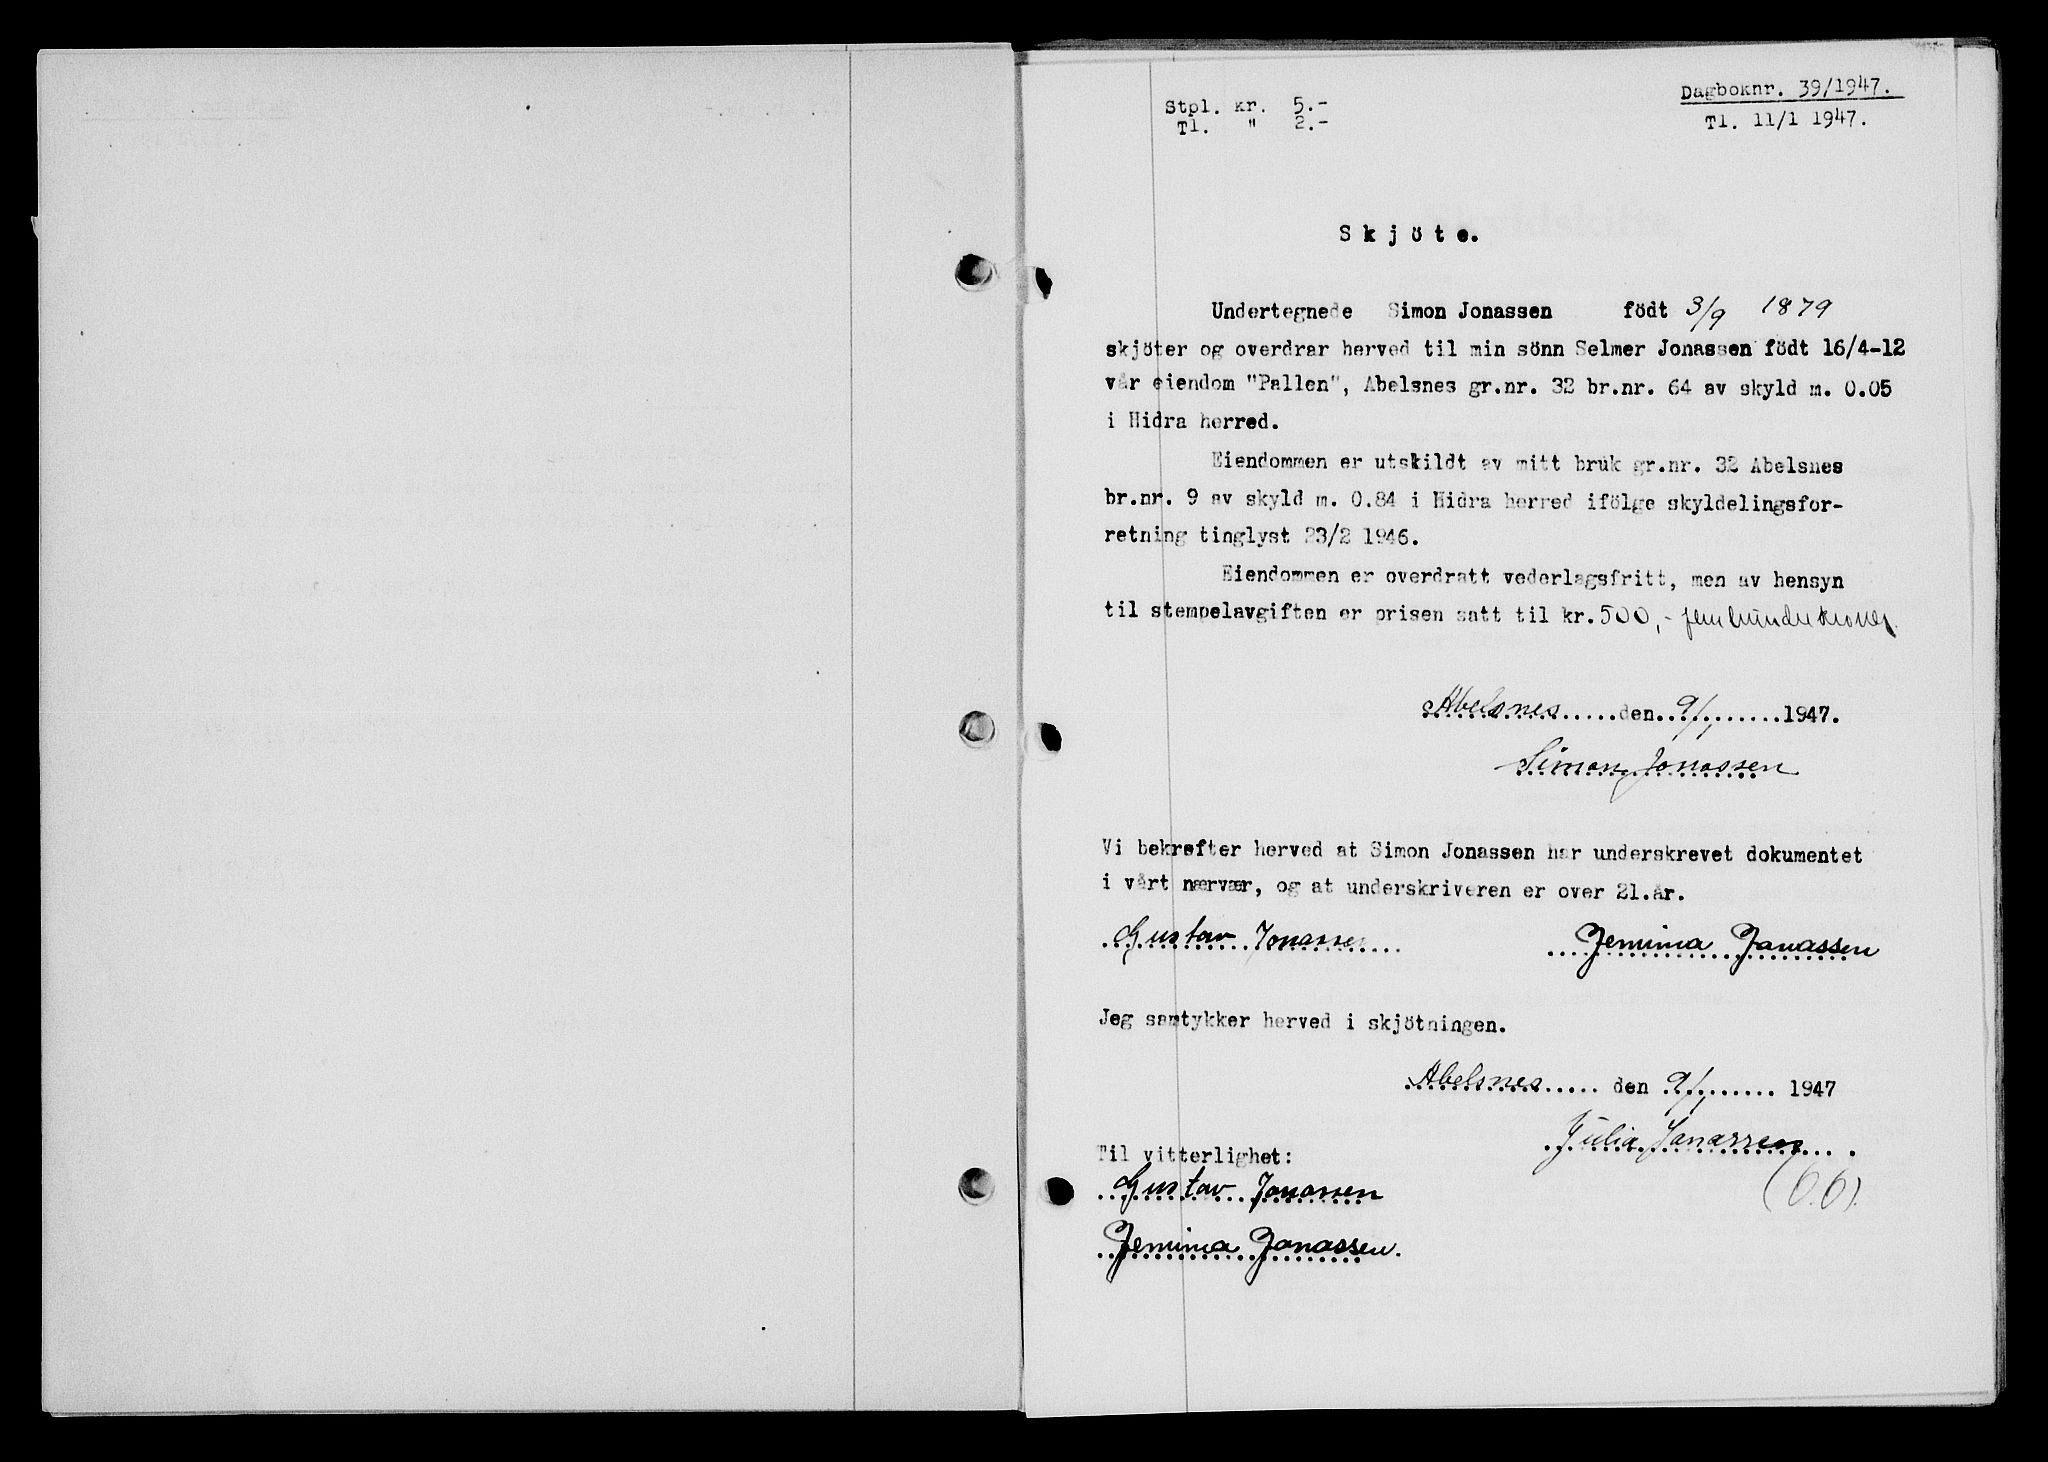 Dagboknr. 39/1947.
Stpl. kr. 5.-
Tl. 11/1 1947.
Tl. " 2.-
Skjöte.
Undertegnede Simon Jonassen födt 3/9 1879
skjöter og overdrar herved til min sönn Selmer Jonassen födt 16/4-12
vår eiendom "Pallen", Abelsnes gr.nr. 32 br.nr. 64 av skyld m. 0.05
i Hidra herred.
Eiendommen er utskildt av mitt bruk gr.nr. 32 Abelsnes
br.nr. 9 av skyld m. 0.84 i Hidra herred ifölge skyldelingsfor-
retning tinglyst 23/2 1946.
Eiendommen er overdratt vederlagsfritt, men av hensyn
til stempelavgiften er prisen satt til kr. 500,- femhundrekroner.
Abelsnes den 9/1 1947.
Simon Jonassen
Vi bekrefter herved at Simon Jonassen har underskrevet dokumentet
i vårt nærvær, og at underskriveren er over 21.år.
Gustav Jonassen Jemima Jonassen
Jeg samtykker herved i skjötningen.
Abelsnes den 9/1 1947
Julia Jonassen
Til vitterlighet:
Gustav Jonassen
Jemima Jonassen.